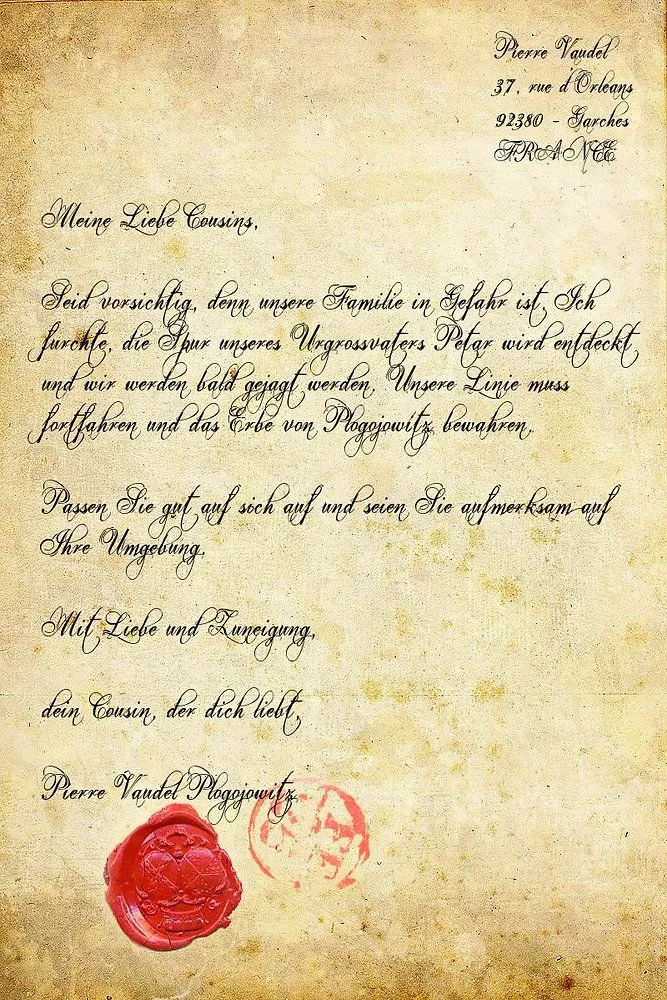 Pierre Vaudel
37, rue d'Orleans
92380 - Garches
FRANCE
Meine Liebe Cousins,
Seid vorsichtig, denn unsere Familie in Gefahr ist. Ich
furchte, die Spur unseres Urgrossvaters Petar wird entdeckt
und wir werden bald gejagt werden. Unsere Linie muss
fortfahren und das Erbe von Plogojowitz bewahren.
Passen Sie gut auf sich auf und seien Sie aufmerksam auf
Ihre Umgebung.
Mit Liebe und Zuneigung,
dein Cousin, der dich liebt,
Pierre Vaudel Plogojowitz